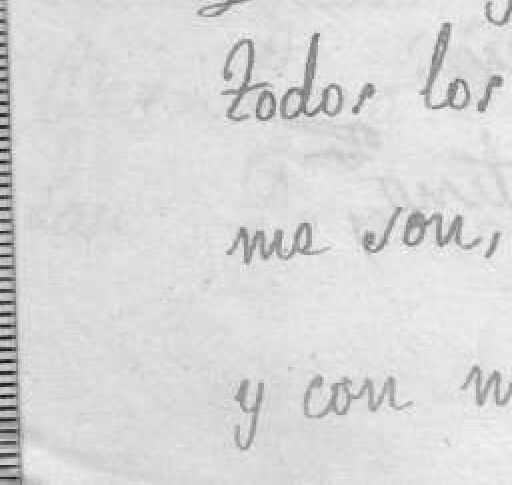 todos los
me son,
y con